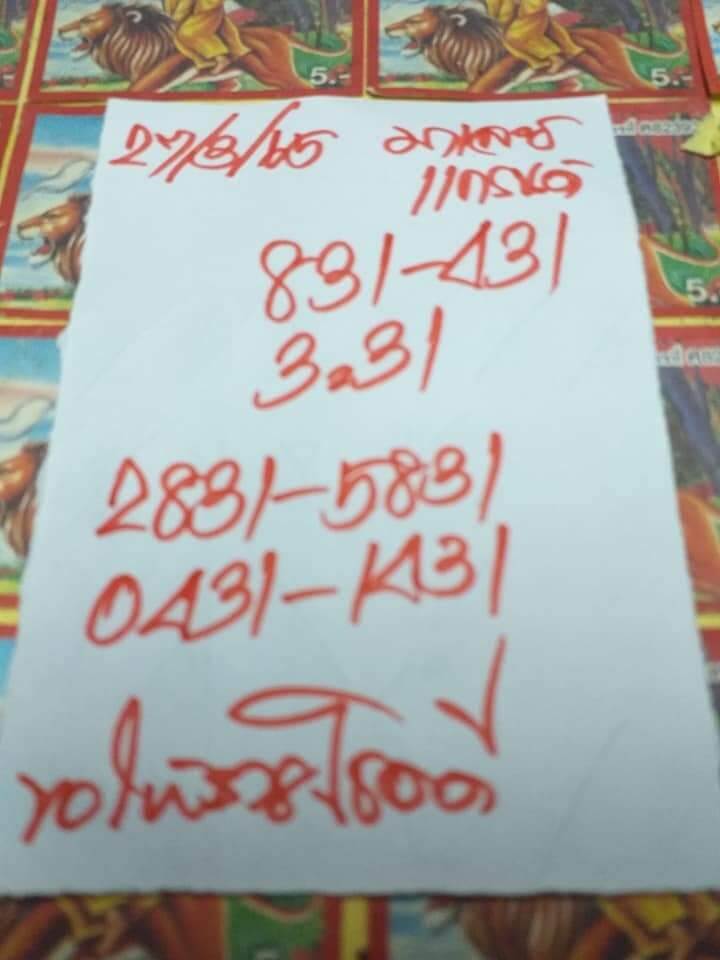 5.-
5.-
27/3/65 มาเลย์
แกรนด์
831-431
3=31
2831-5831
0431-1431
ขอให้รวยโชคดี
5.-